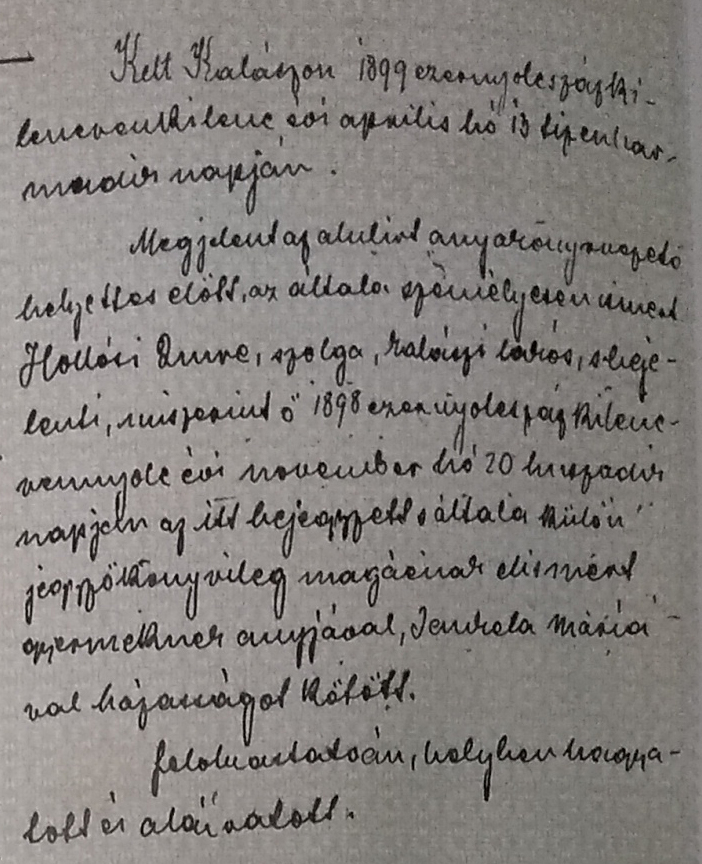 Kelt Kalászon 1899 ezernyolcszázki-
lencvenkilenc évi április hó 13 tizenhar-
madik napján.
Megjelent az alulirt anyakönyvvezető
helyettes előtt, az általa személyesen ismert
Hollósi Imre, szolga, kalászi lakós, s beje-
lenti, miszerint ő 1898 ezernyolcszáz kilenc-
vennyolc évi november hó 20 huszadik
napján az itt bejegyzett s általa külön
jegyzőkönyvileg magáénak elismért
gyermeknek anyjával, Jandela Máriá-
val házasságot kötött.
Felolvastatván, helyben hagya-
tott és aláiratott.